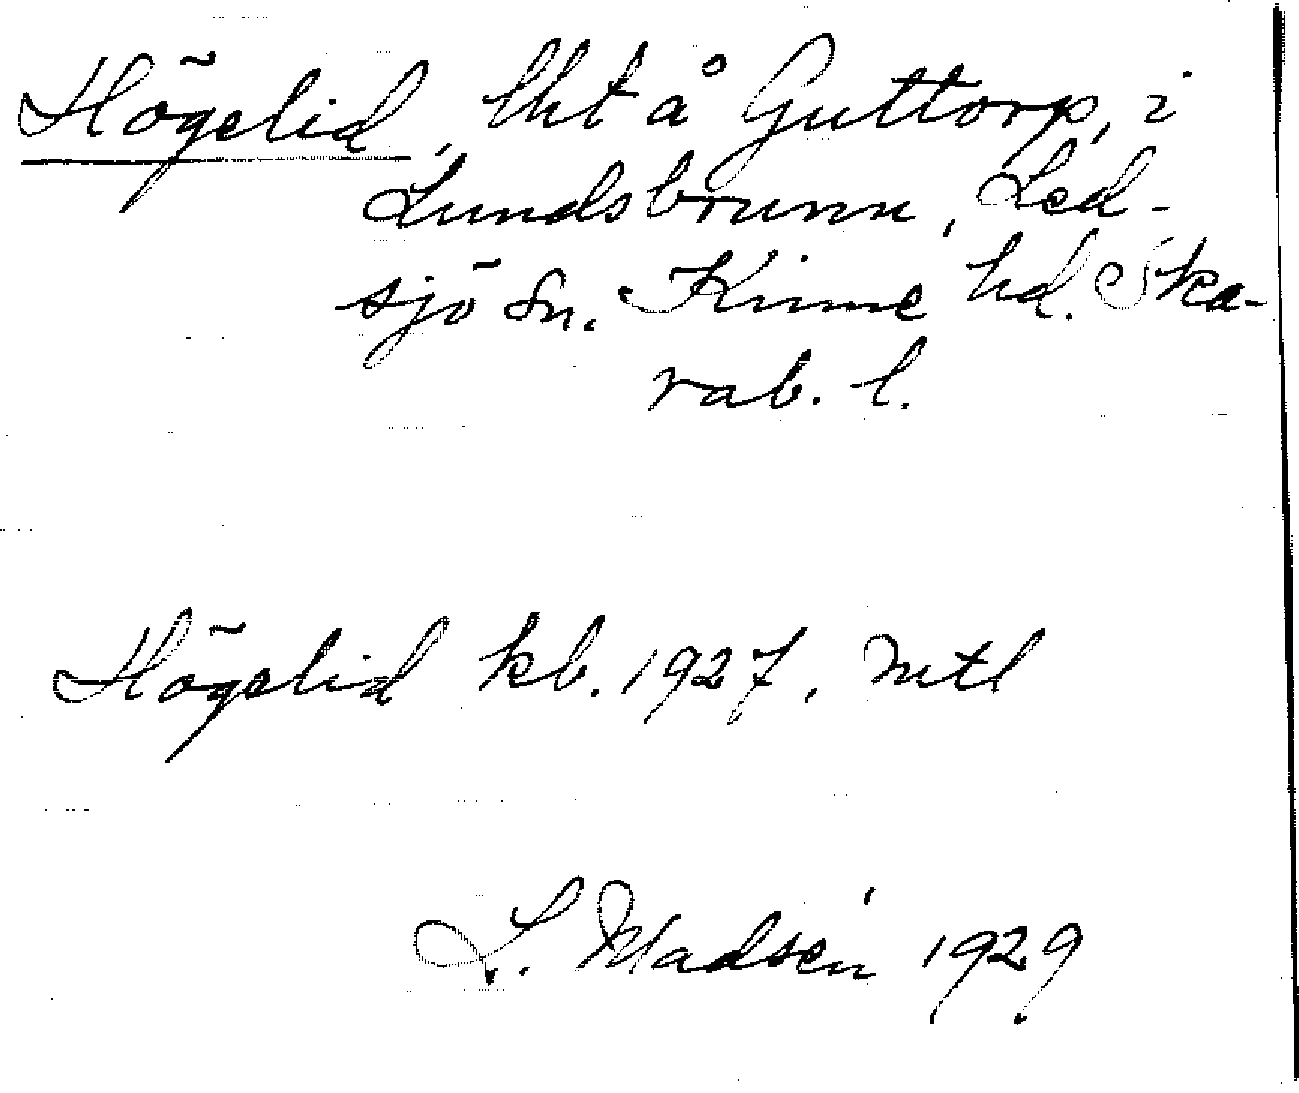 Högelid, lht å Guttorp, i
Lundsbrunn, Led-
sjö sn. Kinne hd. Ska-
rab. l.
Högelid kb. 1927. mtl
L. Madsén 1929